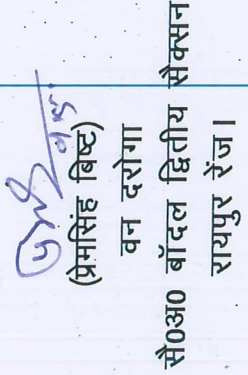 (प्रेमसिंह बिष्ट)
वन दरोगा
से०अ० बाँदल द्वितीय सेक्सन
रायपुर रेंज।